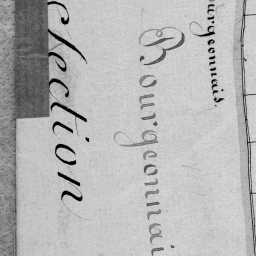 ourgeonnais.
Bourgeonnai
ection